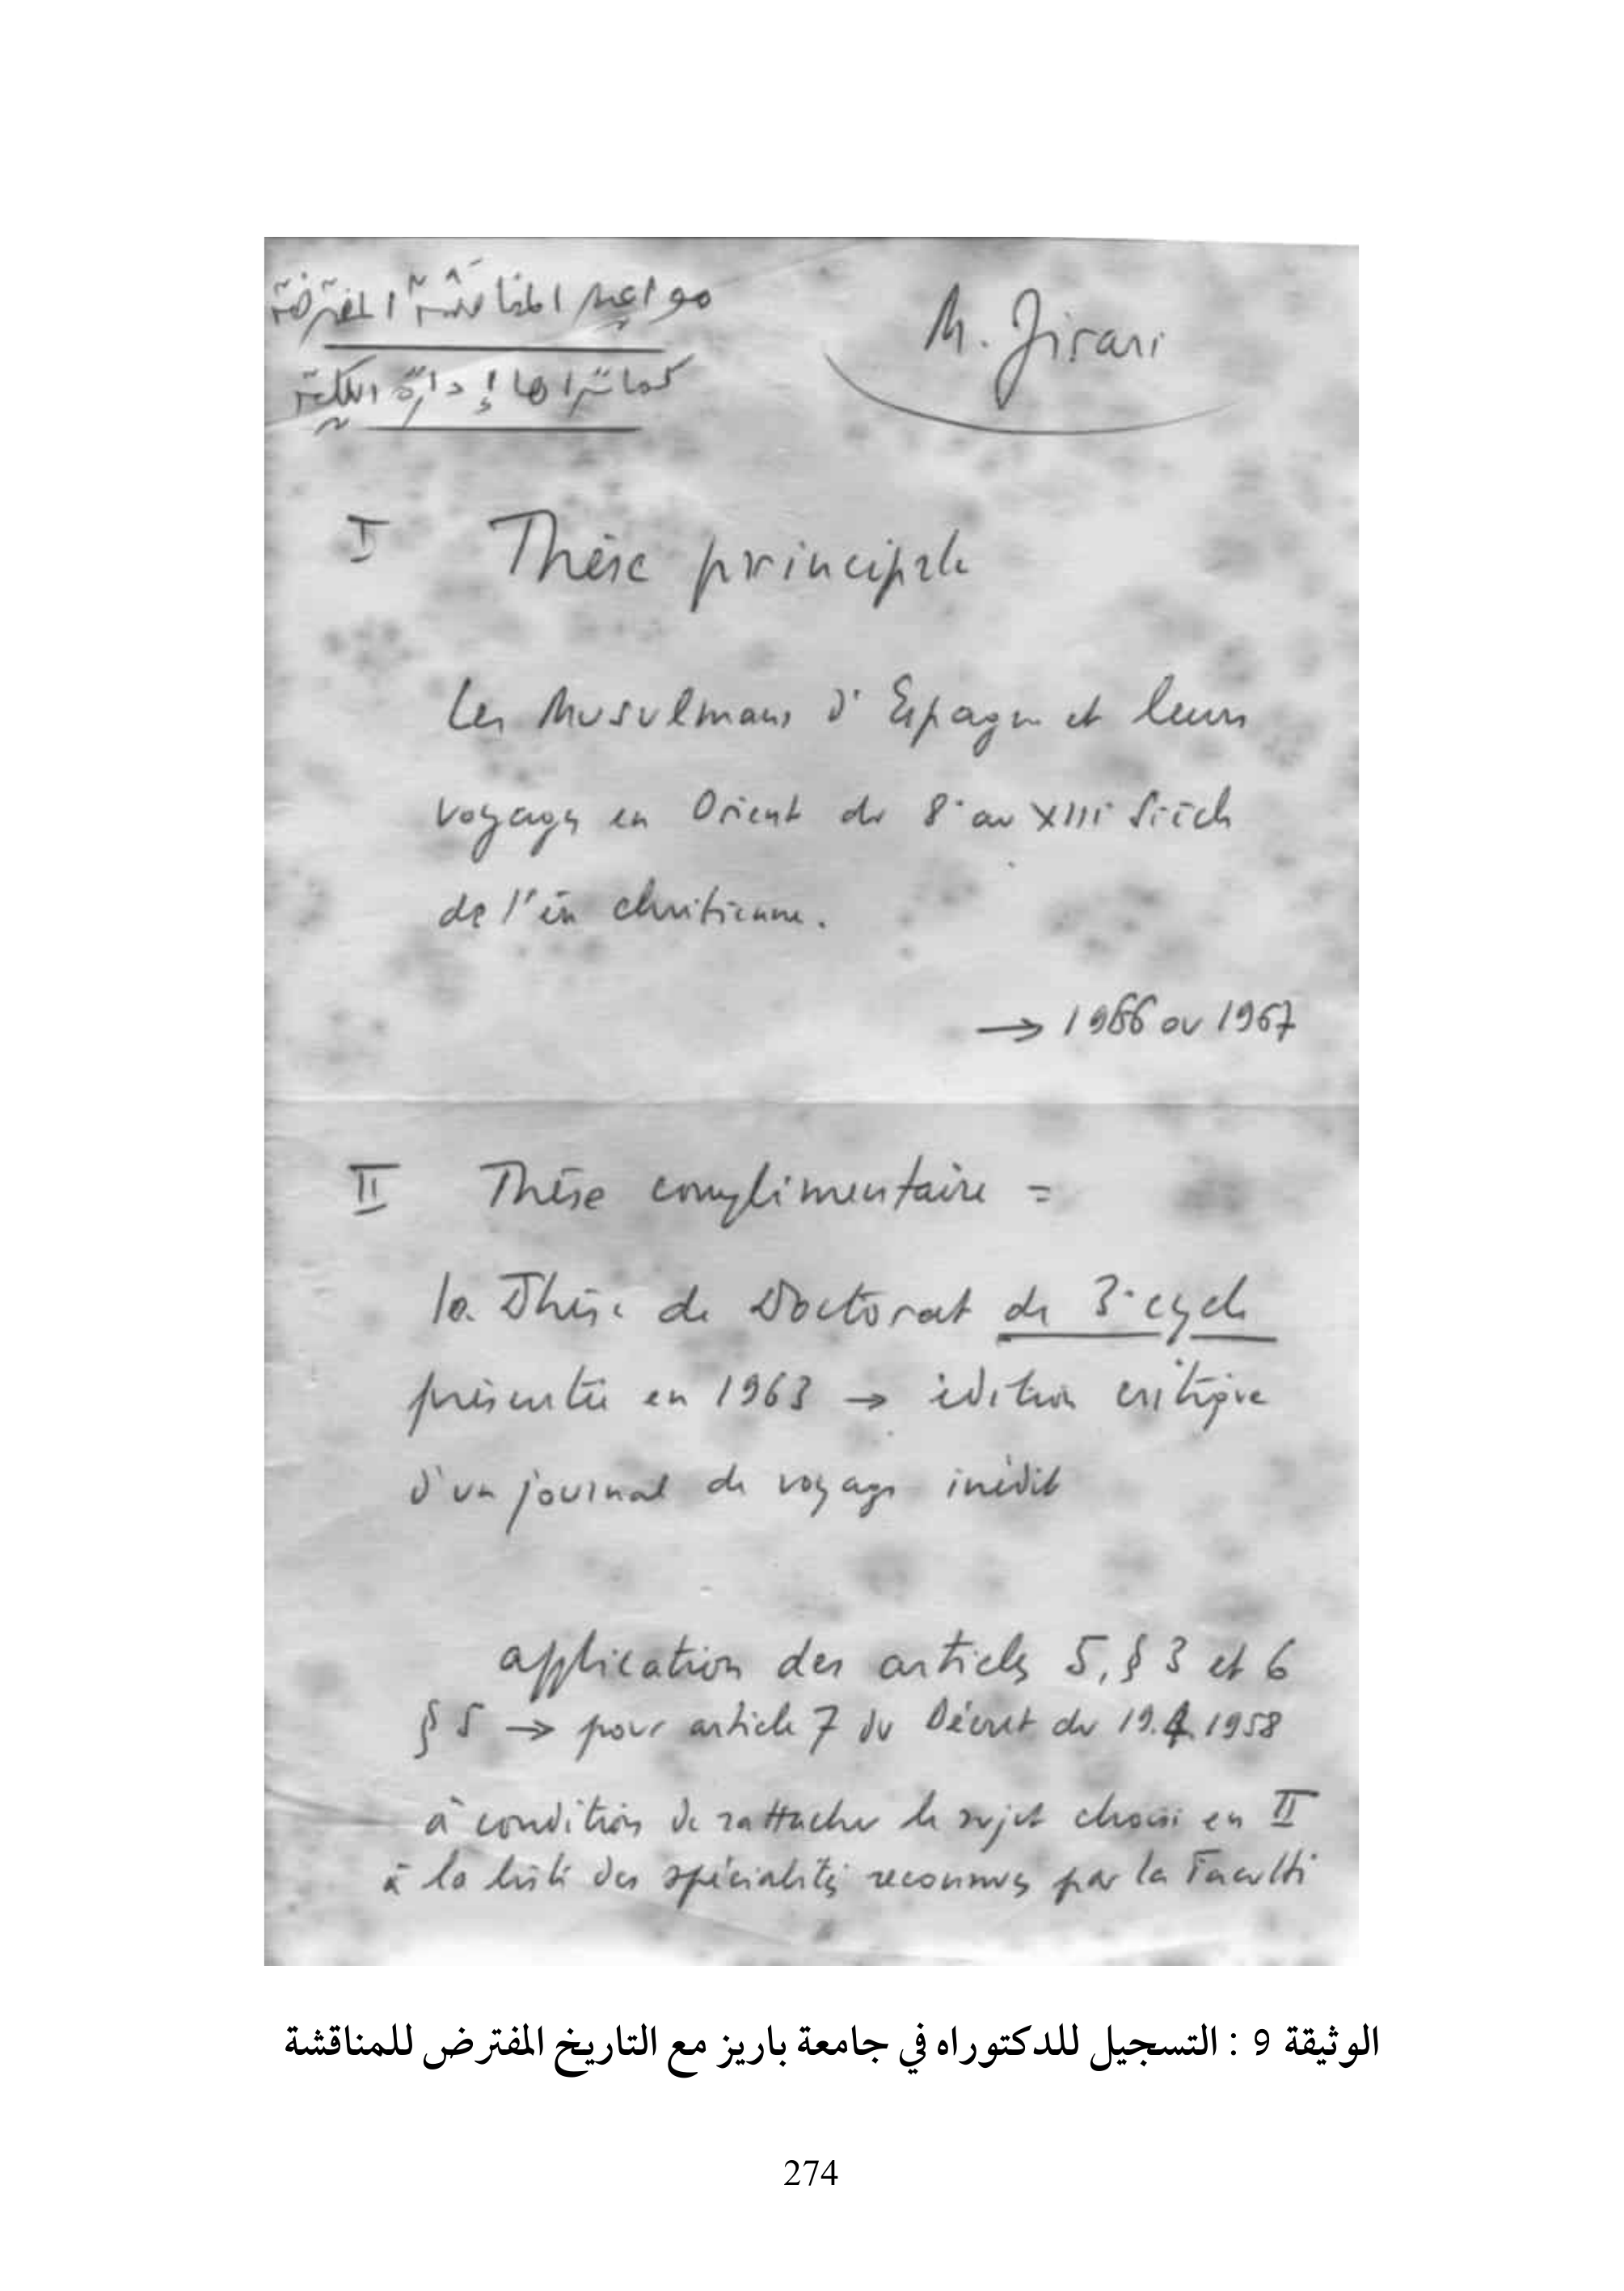 مواعيد المناقشة المفترضة
كما تراها إدارة الكلية
M. Jirari
I Thèse principale
Les Musulmans d'Espagne et leurs
voyages en Orient du 8e au XIIIe siècle
de l'ère chrétienne.
→ 1966 ou 1967
II Thèse complimentaire =
la Thèse de Doctorat de 3e cycle
présentée en 1963 → édition critique
d'un journal de voyage inédit
application des articles 5, § 3 et 6
§ 5 → pour article 7 du Décret du 19.4.1958
à condition de rattacher le sujet choisi en II
à la liste des spécialités reconnues par la Faculté
الوثيقة 9 : التسجيل للدكتوراه في جامعة باريز مع التاريخ المفترض للمناقشة
274